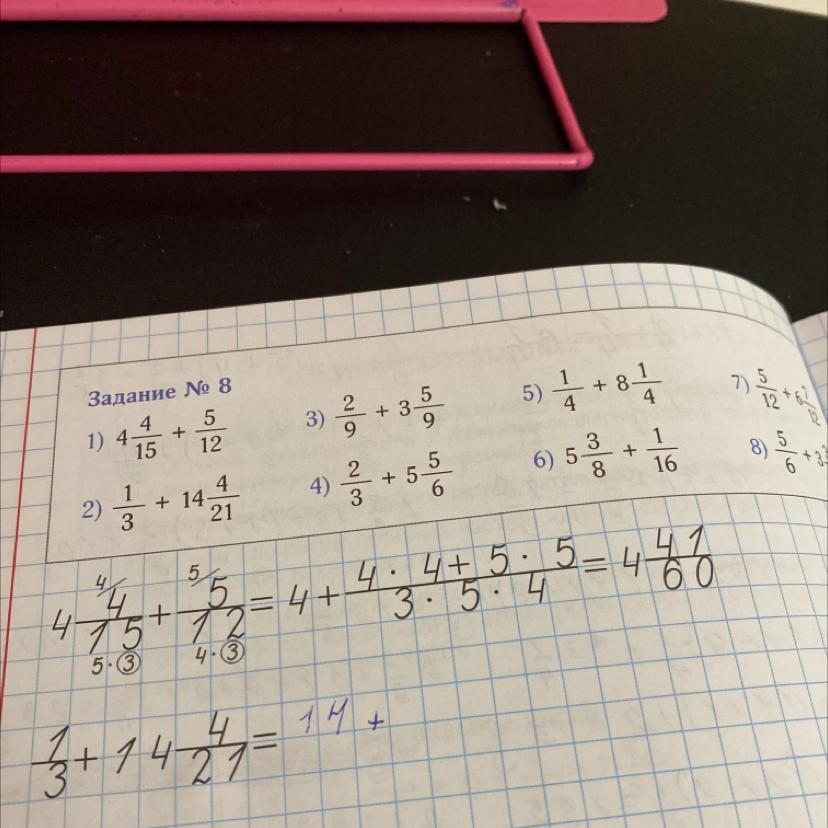 Задание № 8
1) 4 4/15 + 5/12
2) 1/3 + 14 4/21
3) 2/9 + 3 5/9
4) 2/3 + 5 5/6
5) 1/4 + 8 1/4
6) 5 3/8 + 1/16
7) 5/12 + 6
8) 5/6 + 3
4 4/15 + 5/12 = 4 + (4 · 4 + 5 · 5)/(3 · 5 · 4) = 4 41/60
4/ 5/
5·③ 4·③
1/3 + 14 4/21 = 14 +